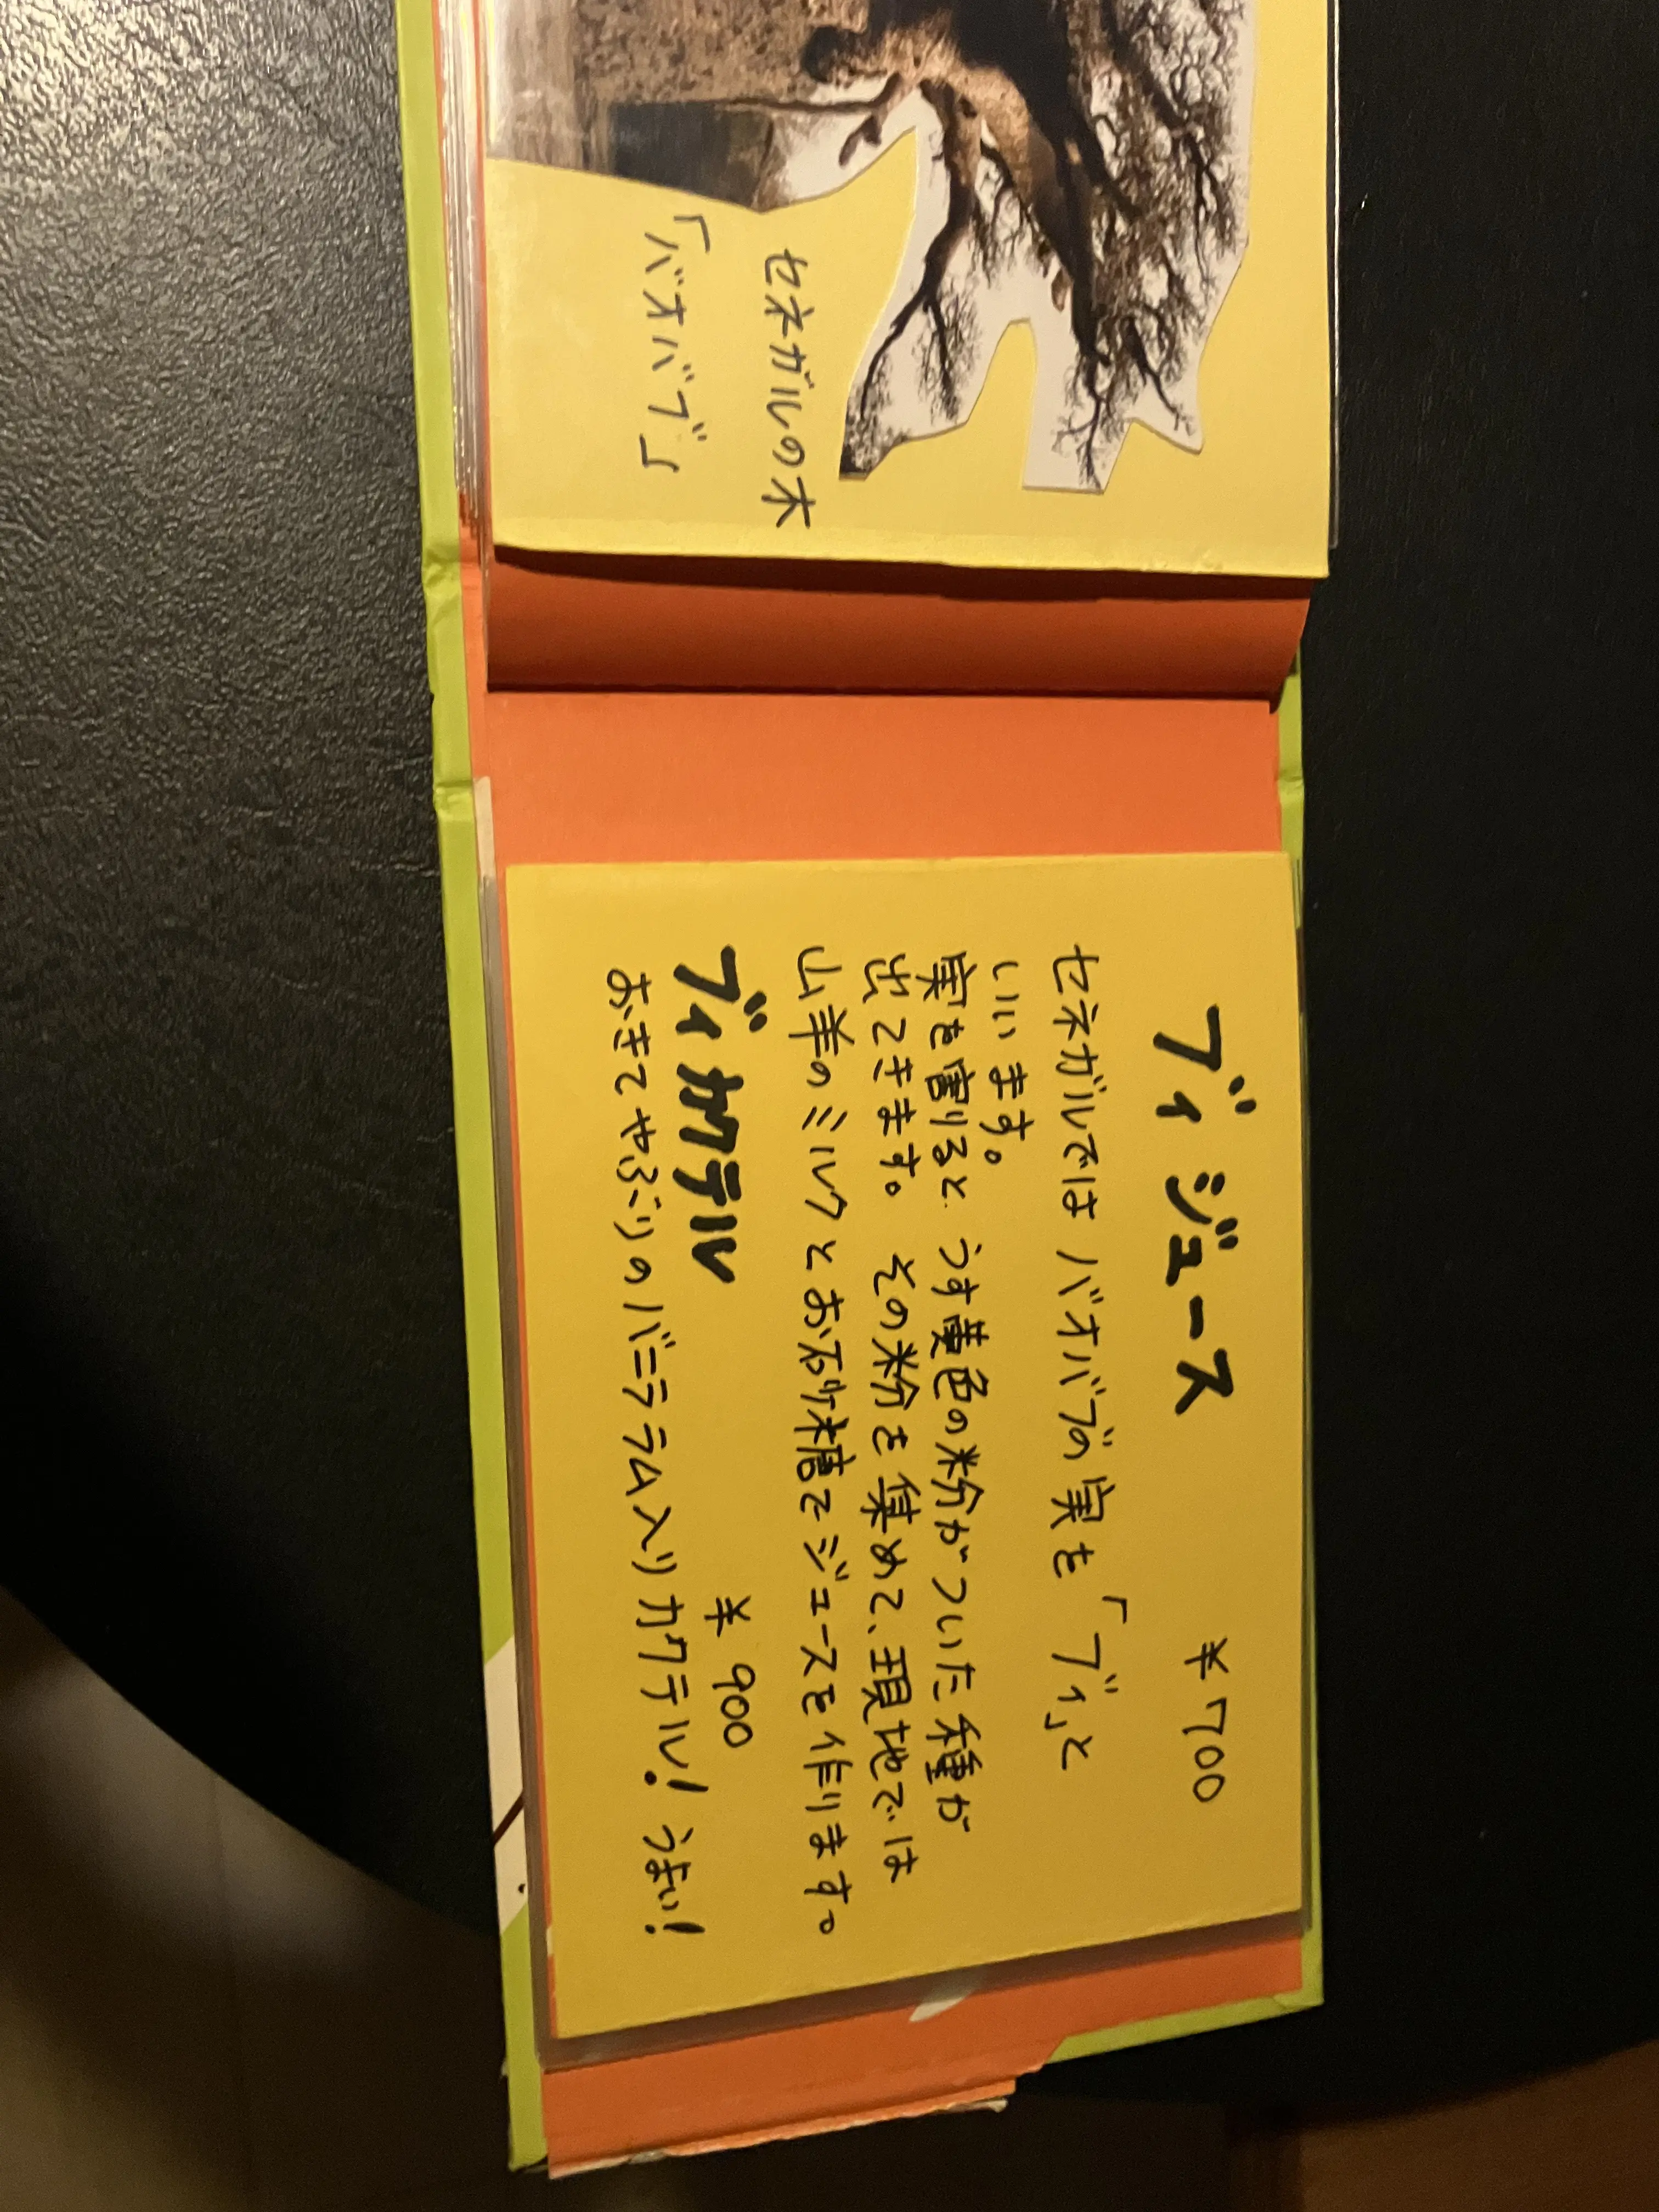 セネガルの木
「バオバブ」
ブィ ジュース ¥700
セネガルでは バオバブの実を 「ブィ」と
いいます。
実を割ると うす黄色の粉がついた種が
出てきます。 その粉を集めて、現地では
山羊のミルクとお砂糖でジュースを作ります。
ブィカクテル ¥900
おきてやぶりのバニララム入りカクテル! うまい!